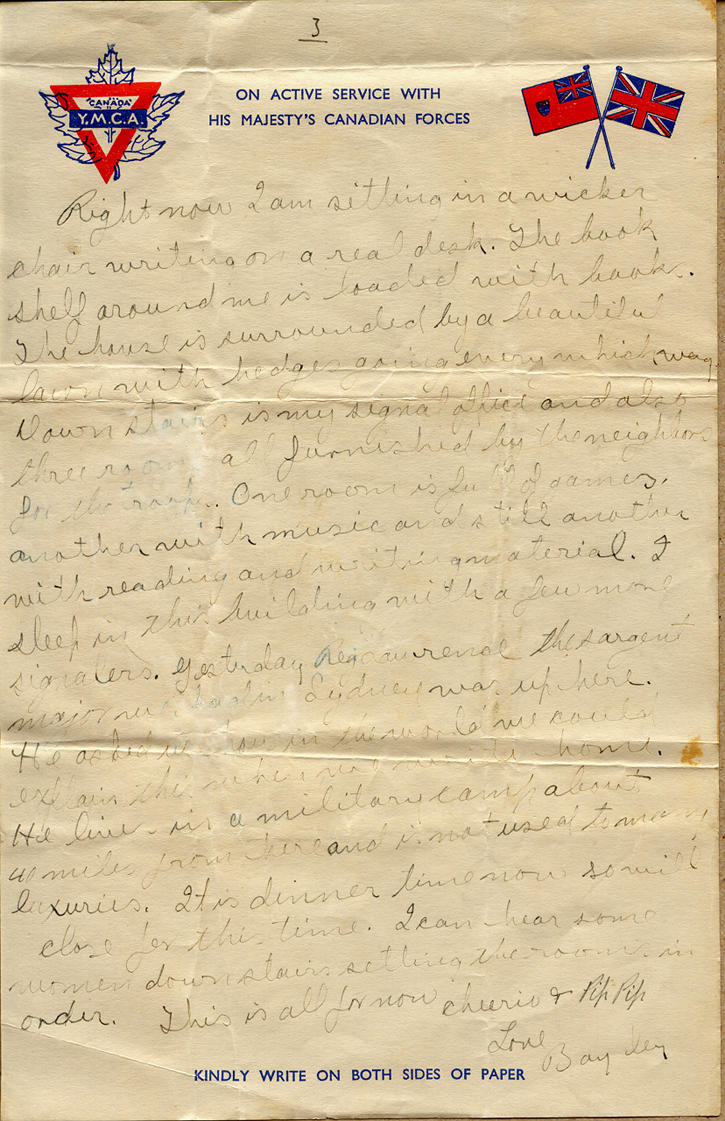 3
CANADA
Y.M.C.A.
ON ACTIVE SERVICE WITH
HIS MAJESTY'S CANADIAN FORCES
Right now I am sitting in a wicker
chair writing on a real desk. The book
shelf around me is loaded with books.
The house is surrounded by a beautiful
lawn with hedges going every which way.
Down stairs is my signal office and also
three rooms all furnished by the neighbors
for the troops. One room is full of games,
another with music and still another
with reading and writing material. I
sleep in this building with a few more
signalers. Yesterday Reg Lawrence the sargent
major we had in Sydney was up here.
He asked us how in the world we could
explain this when we write home.
He lives in a military camp about
miles from here and is not used to many
luxuries. It is dinner time now so will
close for this time. I can hear some
women down stairs setting the rooms in
order. This is all for now cheerio & Pip Pip
Love
KINDLY WRITE ON BOTH SIDES OF PAPER